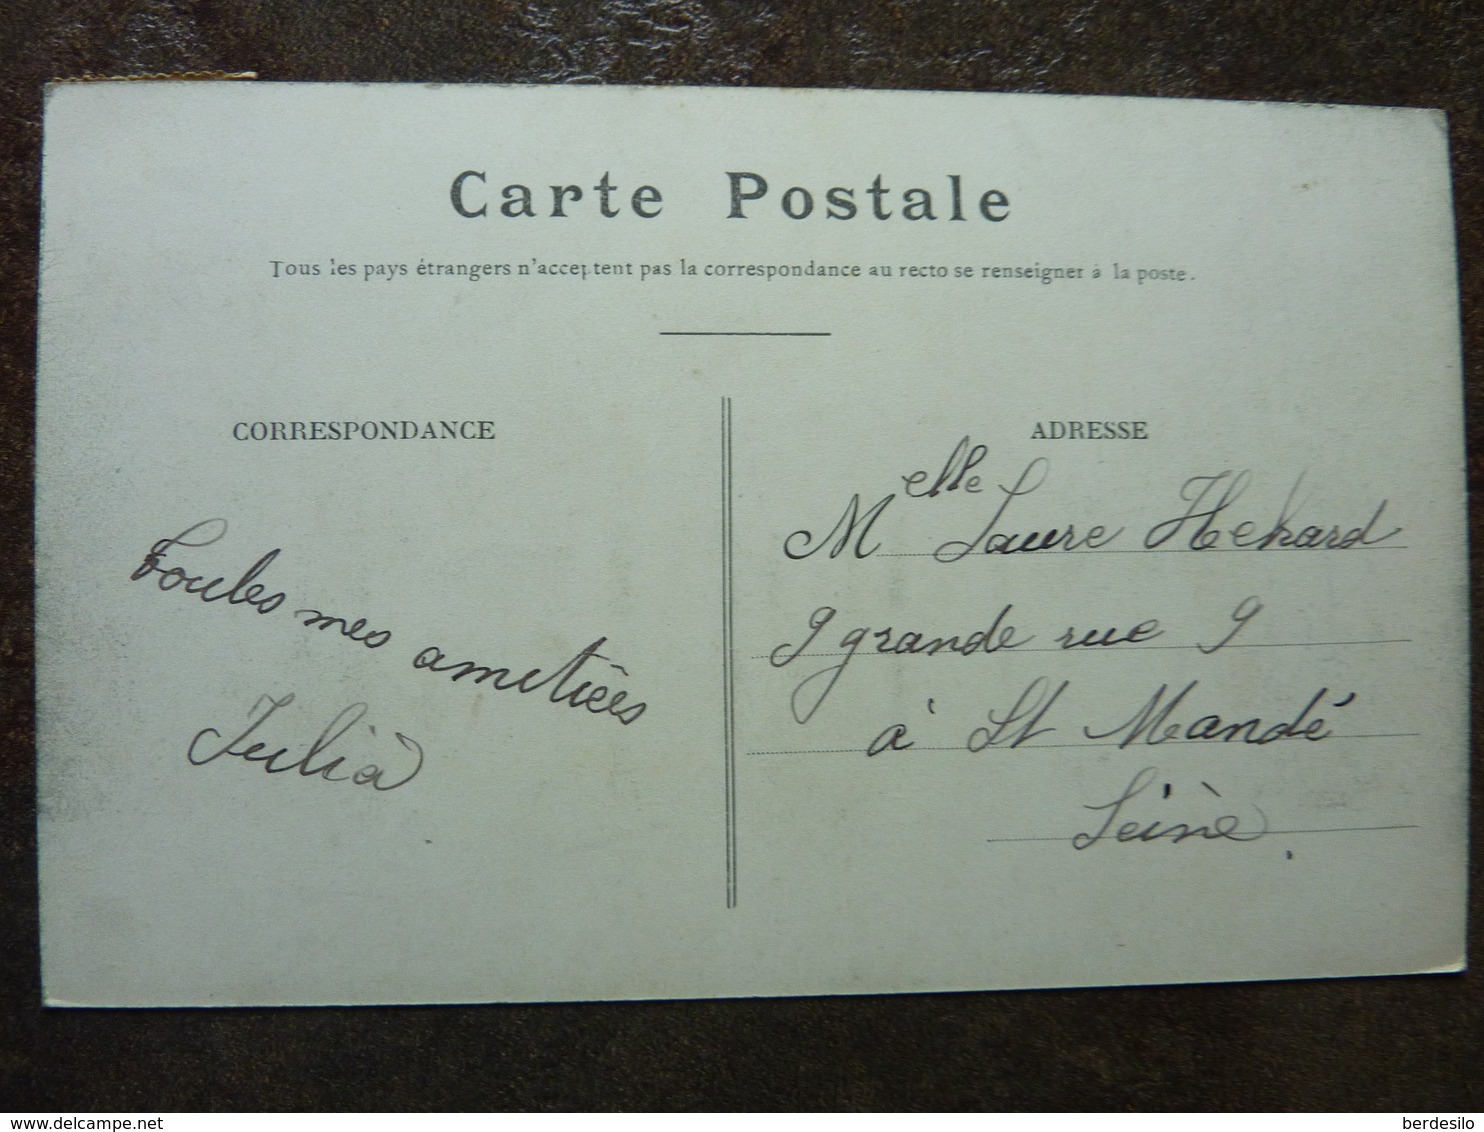 Carte Postale
Tous les pays étrangers n'acceptent pas la correspondance au recto se renseigner à la poste.
CORRESPONDANCE
Toutes mes amitiées
Julia
ADRESSE
Melle Laure Hekard
9 grande rue 9
à St Mandé
Seine.
delcampe.net
berdesilo